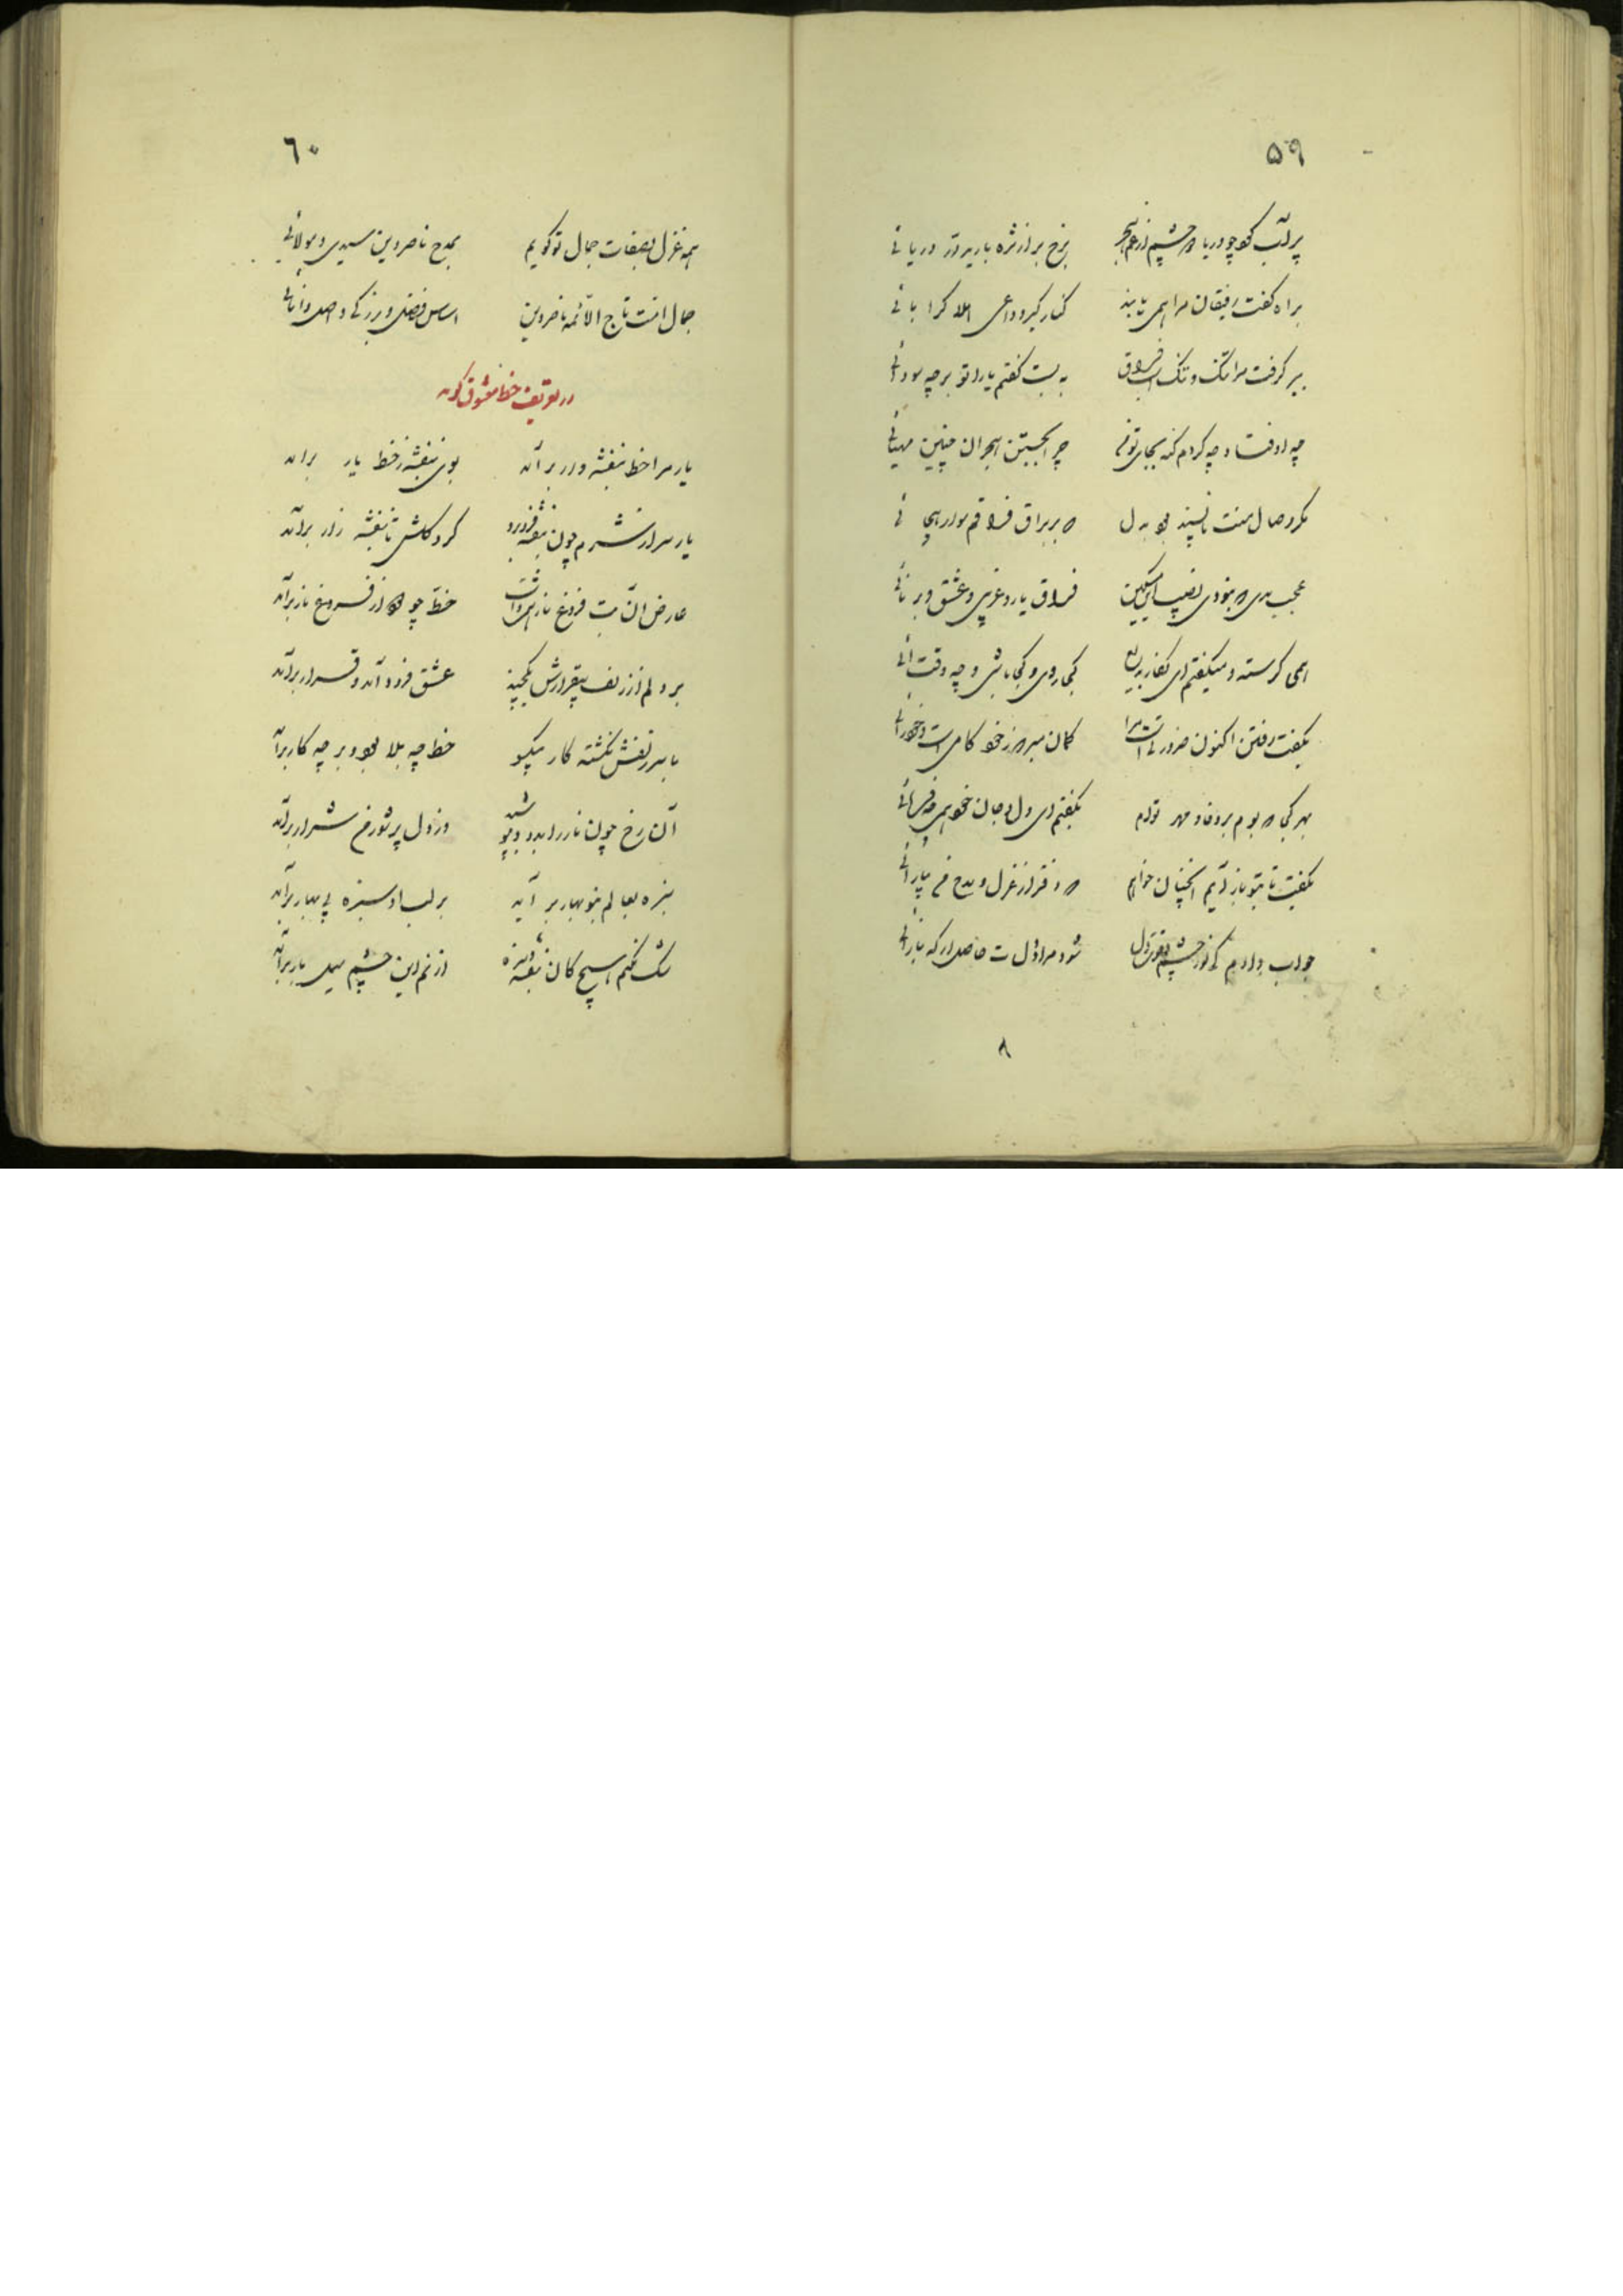 ۵۹
پر آب کرد چو دریا دو چشم از غم هجر برخ بر از مژه بارید در دریائی
براه گفت رفیقان مرا همی‌ پایند کنار گیر و وداعی هلا کرا پائی
ببر گرفت مرا تنگ و تنگ فراق به بست گفتم یارا تو بر چه سودائی
چه اوفتاد و چه کردم گنه بجای تو من چرا بجستن هجران چنین مهیائی
مگر وصال منت ناپسند بود بدل که بر براق فراقم سوار
عجب بدی که نبودی نصیب این مسکین فراق یار و غریبی و عشق و برنائی
همی گرسته و میگفتم ای نگار بدیع کجا روی و کجا باشی و چه وقت آئی
بگفت رفتن اکنون ضرورتست مرا گمان مبر که ز خود کامی است و خود رائی
بهر کجا که بوم بر وفا و مهر توام بگفتم ای دل و جان خود همی چه فرمائی
بگفت تا بتو باز آیم آنچنان خواهم که دفتر از غزل و مدح من بیارائی
جواب دادم کز نور چشم و قوت دل شود مرا ز لبت حاصل ار که باز آئی
۸
۶۰
همه غزل بصفات جمال تو گویم بمدح ناصر دین سیدی و مولائی
جمال امت تاج الائمه ناصر دین اساس فضل و بزرگی و اصل دانائی
در تعریف خط معشوق گوید
یار مرا خط بنفشه وار بر آمد بوی بنفشه ز خط یار بر آمد
یار سر از شرم چون بنفشه فرو برد گرد گلش تا بنفشه زار بر آمد
عارض آن بت فروغ نار همی داشت خط چو دود از فروغ نار بر آمد
بر دلم از زلف بیقرارش یکچند عشق فرود آمد و قرار بر آمد
با سر زلفش نگشته کار میکو خط چه بلا بود و بر چه کار بر آمد
آن رخ چون نار را بدود بپوشید وز دل پر شور من شرار بر آمد
سبزه بعالم بنوبهار بر آید بر لب او سبزه بی بهار بر آمد
شک نکنم هیچ کان بنفشه و سبزه از نم این چشم سیل بار بر آمد